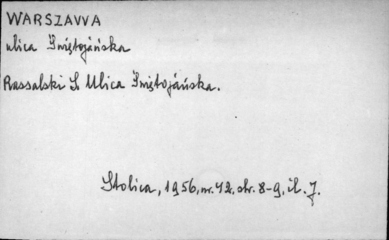 WARSZAWA
ulica Świętojańska
Russalski S. Ulica Świętojańska.
Stolica, 1956, nr. 42. str. 8-9, il. 7.